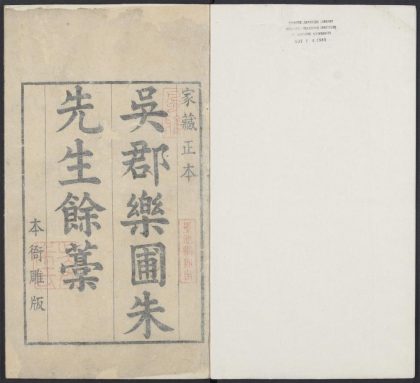 家藏正本
吳郡樂圃朱
先生餘藁
本衙雕版